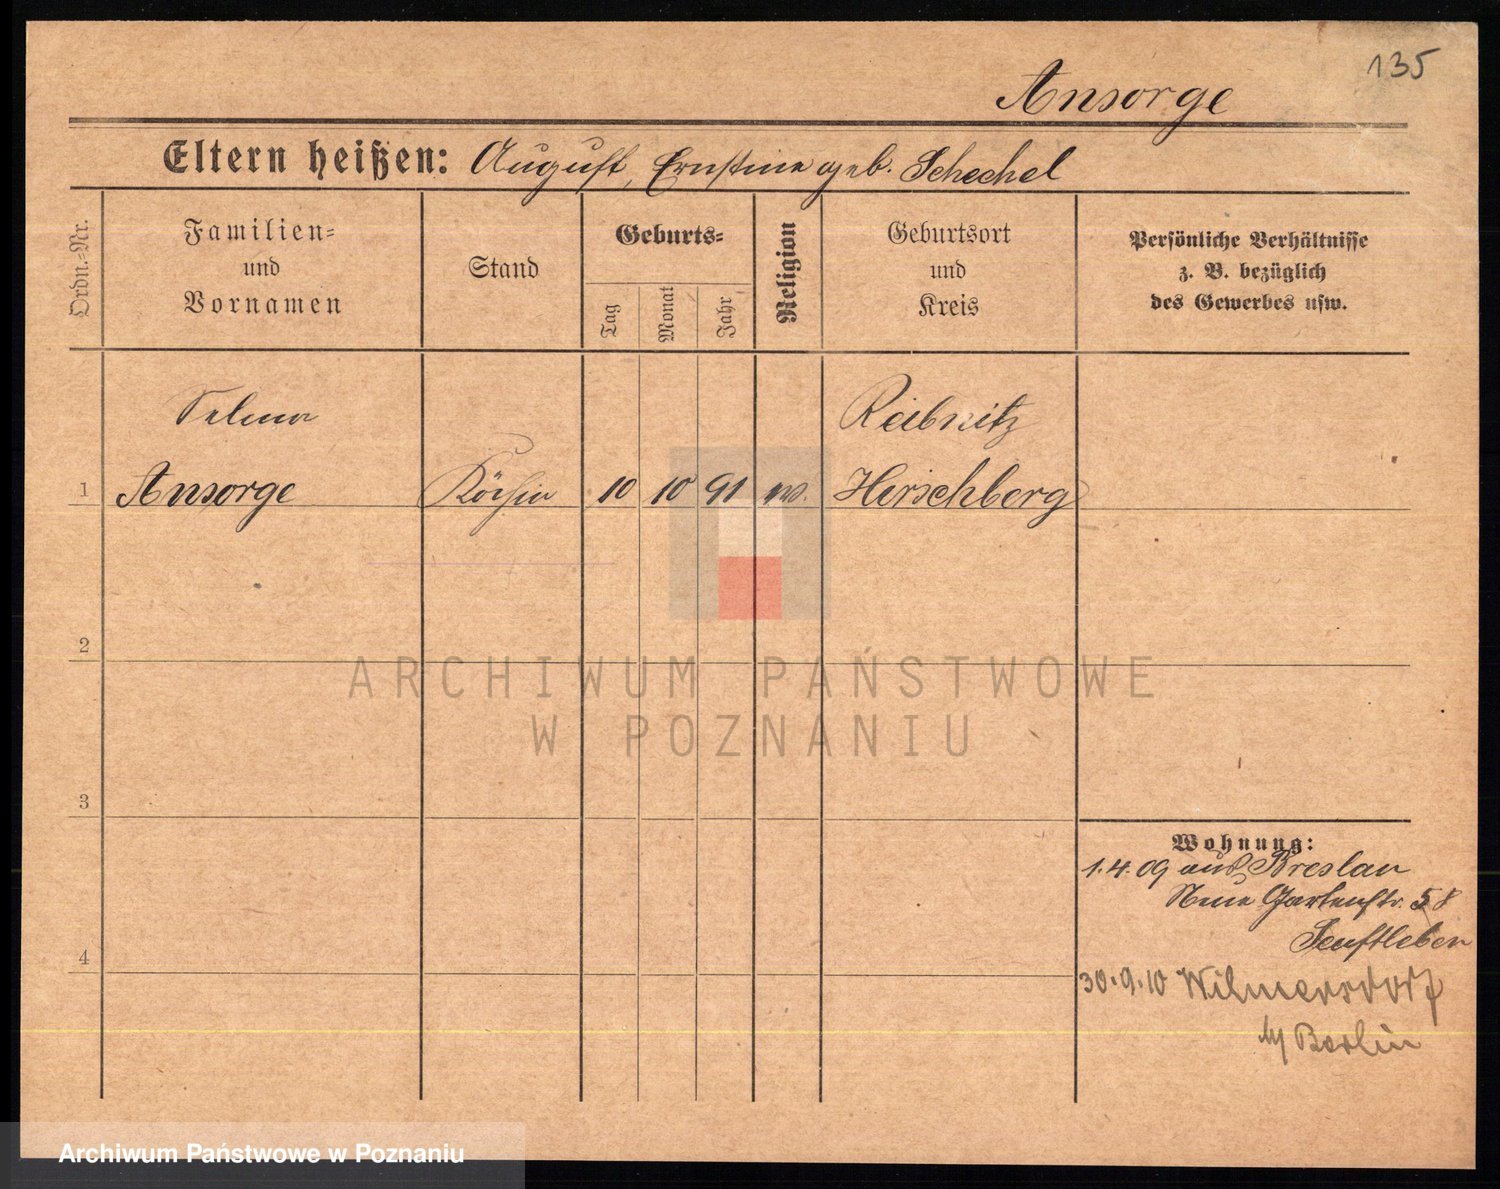 135
Ansorge
Eltern heißen: August, Ernstine geb. Schechel
Ordn.-Nr.
Familien-
und
Vornamen
Stand
Geburts-
Tag
Monat
Jahr
Religion
Geburtsort
und
Kreis
Persönliche Verhältnisse
z. B. bezüglich
des Gewerbes usw.
Selma Reibnitz
1 Ansorge Köchin 10 10 91 Hirschberg
2
3
4
Wohnung:
1.4.09 aus Breslau
Neue Gartenstr. 58
Senftleben
30.9.10 Wilmersdorf
b/ Berlin
ARCHIWUM PAŃSTWOWE
W POZNANIU
Archiwum Państwowe w Poznaniu